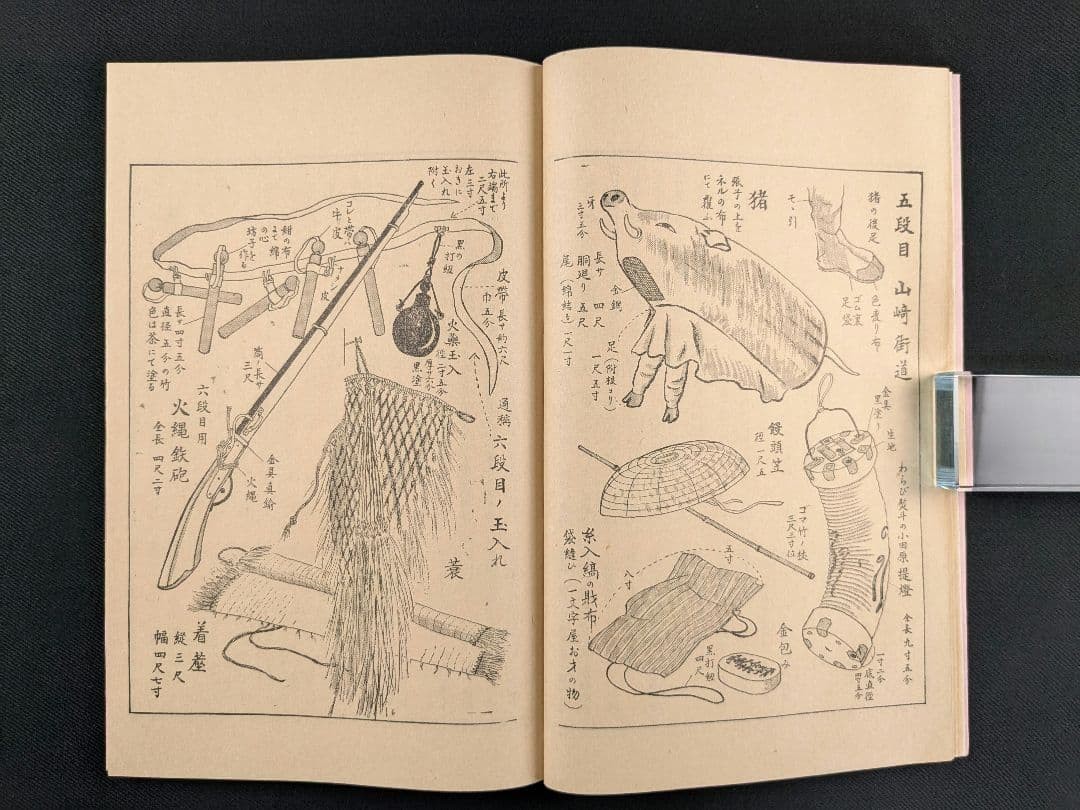 五段目 山崎街道
猪の後足
モヽ引
色変り布
ゴム裏
足袋
猪
張子の上を
ネルの布
にて覆ふ
牙
三寸五分
長サ 四尺
胴廻り 五尺
尾(綿結ヒ)一尺一寸
金鋼
足(附根ヨリ)
一尺五寸
金具
黒塗り
生地
わらび熨斗の小田原提燈
全長九寸五分
一寸二分
底直径
四寸五分
饅頭笠
径一尺五
ゴマ竹ノ杖
三尺三寸位
糸入縞の財布
袋縫ひ(一文字屋お才の物)
五寸
八寸
黒打紐
四尺
金包み
此所より
右端まで
二尺五寸
左三寸
おきに
玉入れ
附く
黒の
打紐
皮帯 長サ約六尺
巾五分
コレと帯ハ
牛皮
紺の布
まて綿
の心
坊子を
作る
ナメシ
皮
長サ四寸五分
直径五分の竹
色は茶にて塗る
火薬玉入
径二寸五分
厚サ六分
黒塗
通稱 六段目ノ玉入れ
筒ノ長サ
三尺
六段目用
火縄鉄砲
全長 四尺二寸
金具真鍮
火縄
蓑
着茣
縦三尺
幅四尺七寸